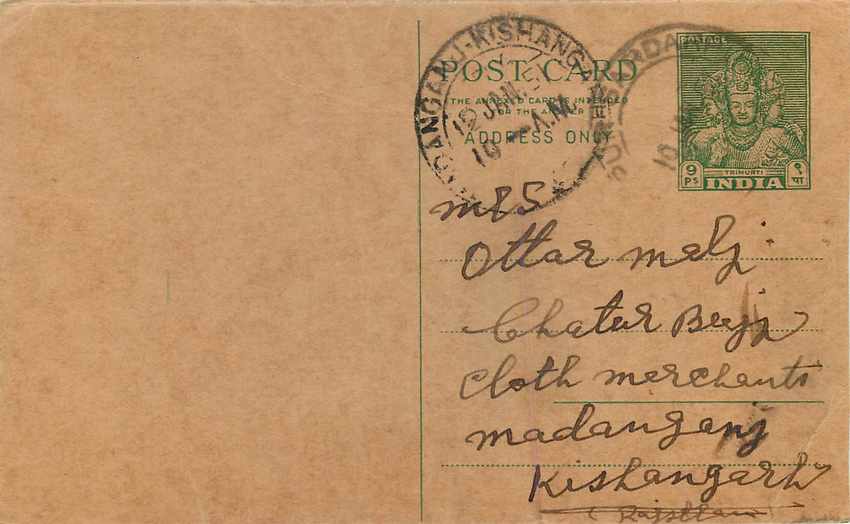 POST CARD
THE ANNEXED CARD IS INTENDED
FOR THE ANSWER
ADDRESS ONLY
POSTAGE
TRIMURTI
9 PS INDIA ९ पा
MADANGANJ-KISHANGARH
12 JAN
10 - A.M.
10 JAN
M/S
Ottar melji
Chatur Bhujji
Cloth merchants
madanganj
Kishangarh
(Rajsthan)